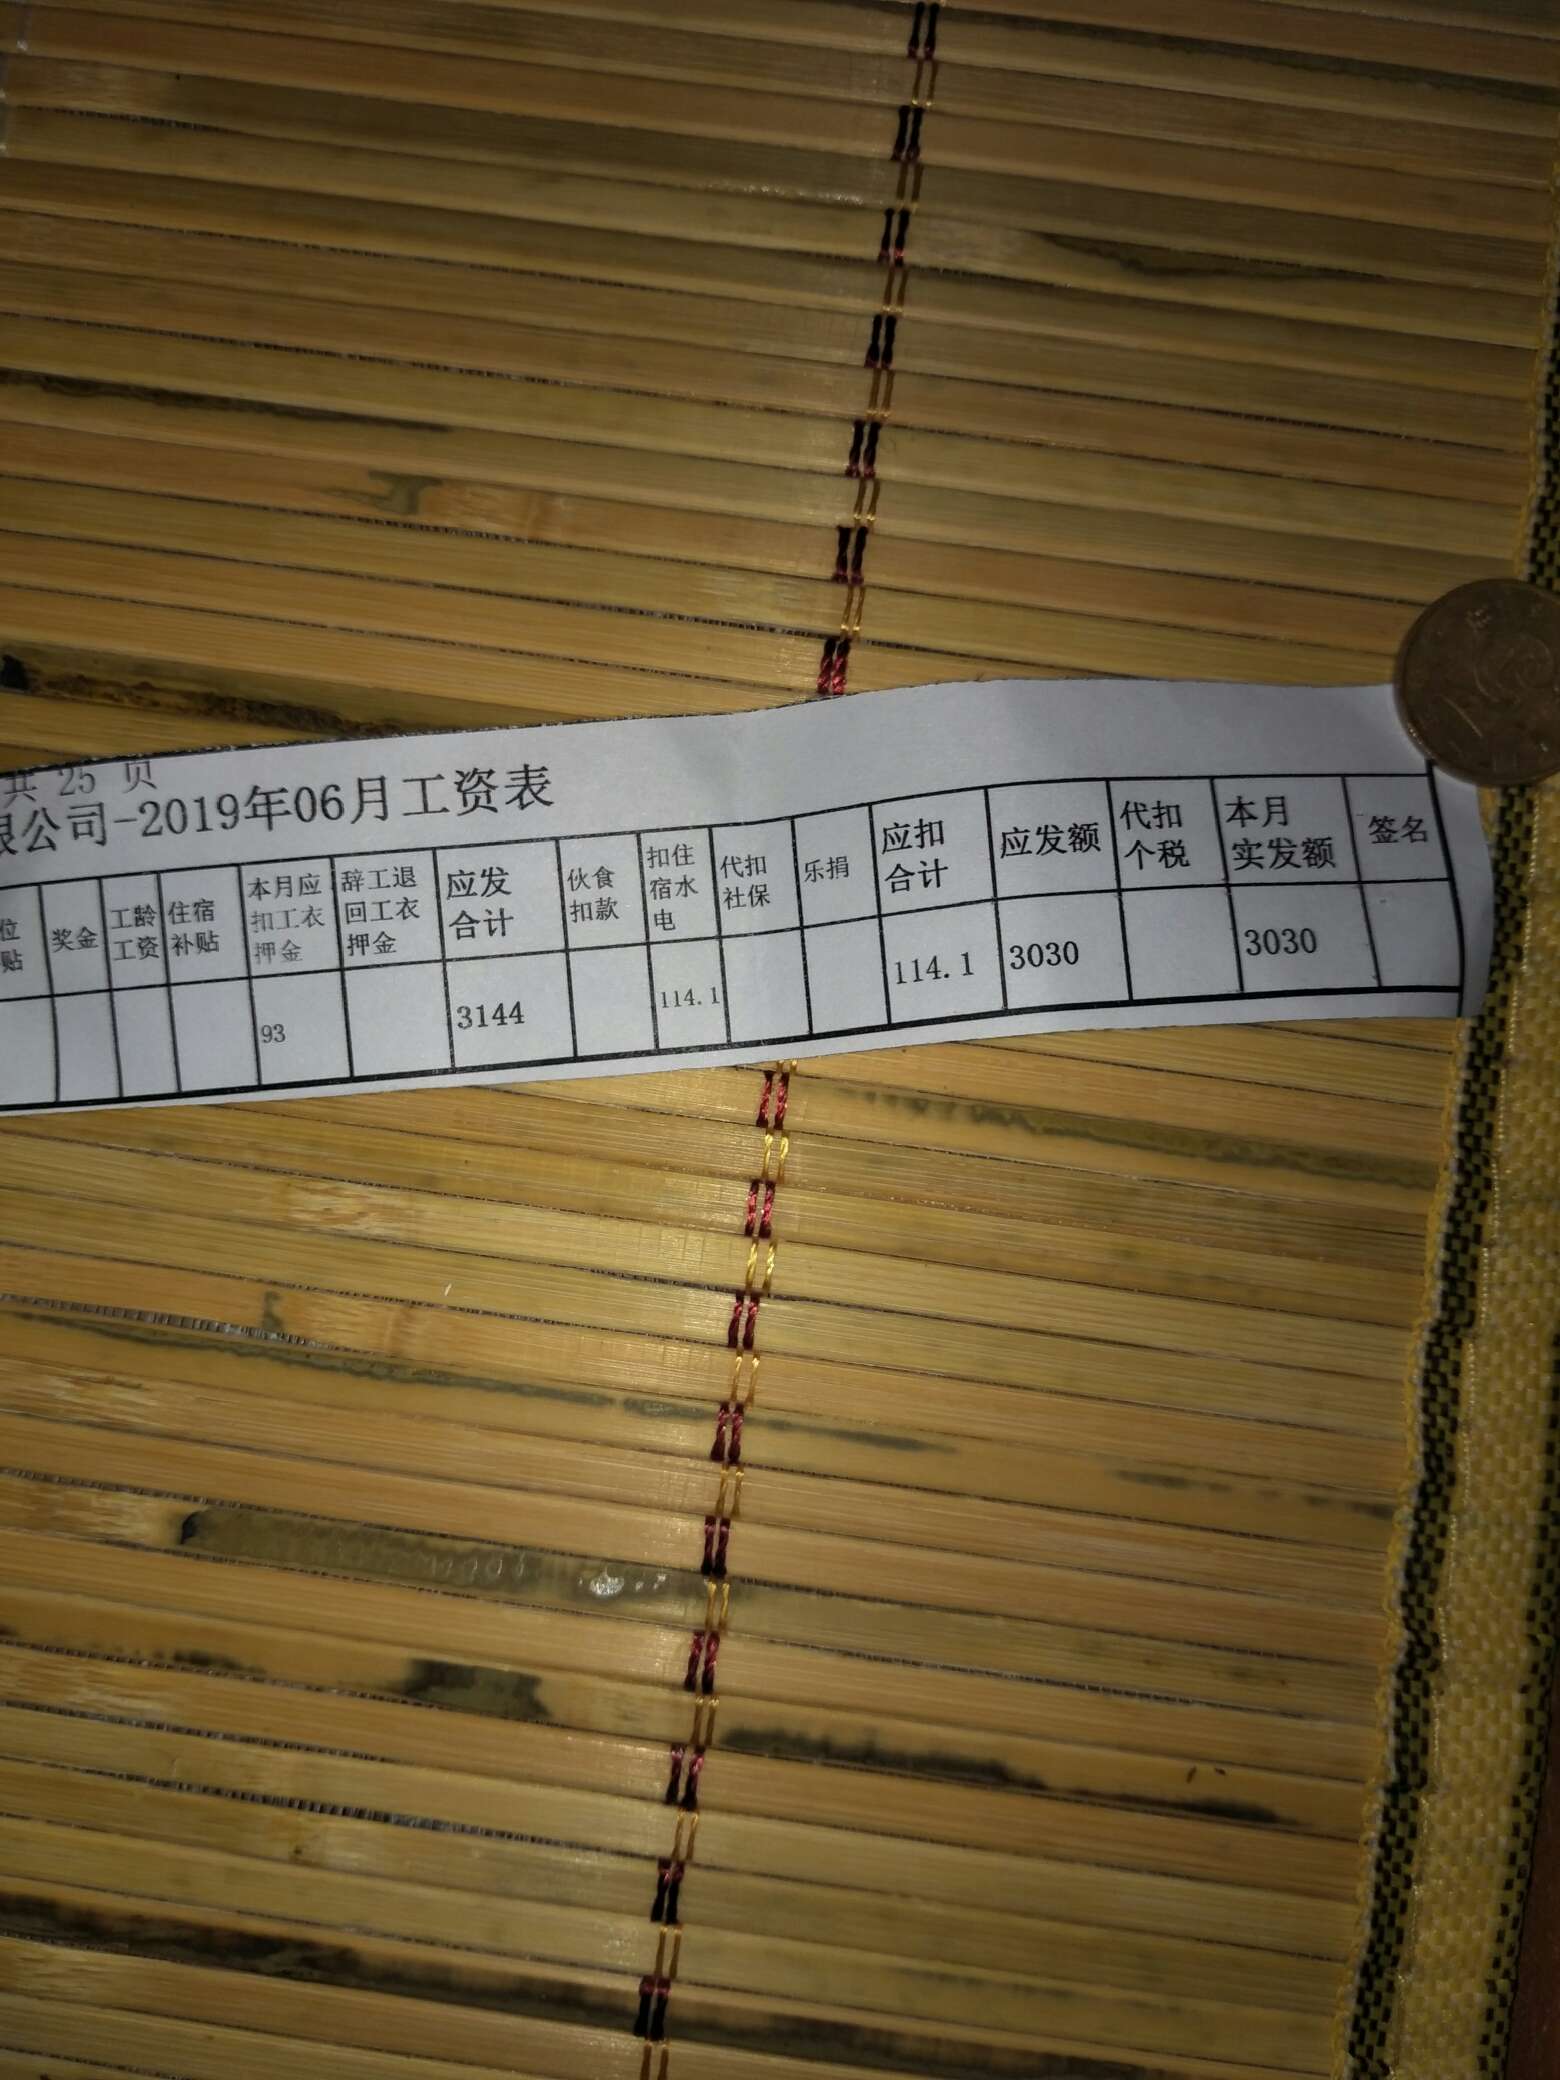 共 25 页
限公司-2019年06月工资表
位 奖金 工龄 住宿 本月应 辞工退 应发 伙食 扣住 代扣 乐捐 应扣 应发额 代扣 本月 签名
贴 工资 补贴 扣工衣 回工衣 合计 扣款 宿水 社保 合计 个税 实发额
押金 押金 电
93 3144 114.1 114.1 3030 3030